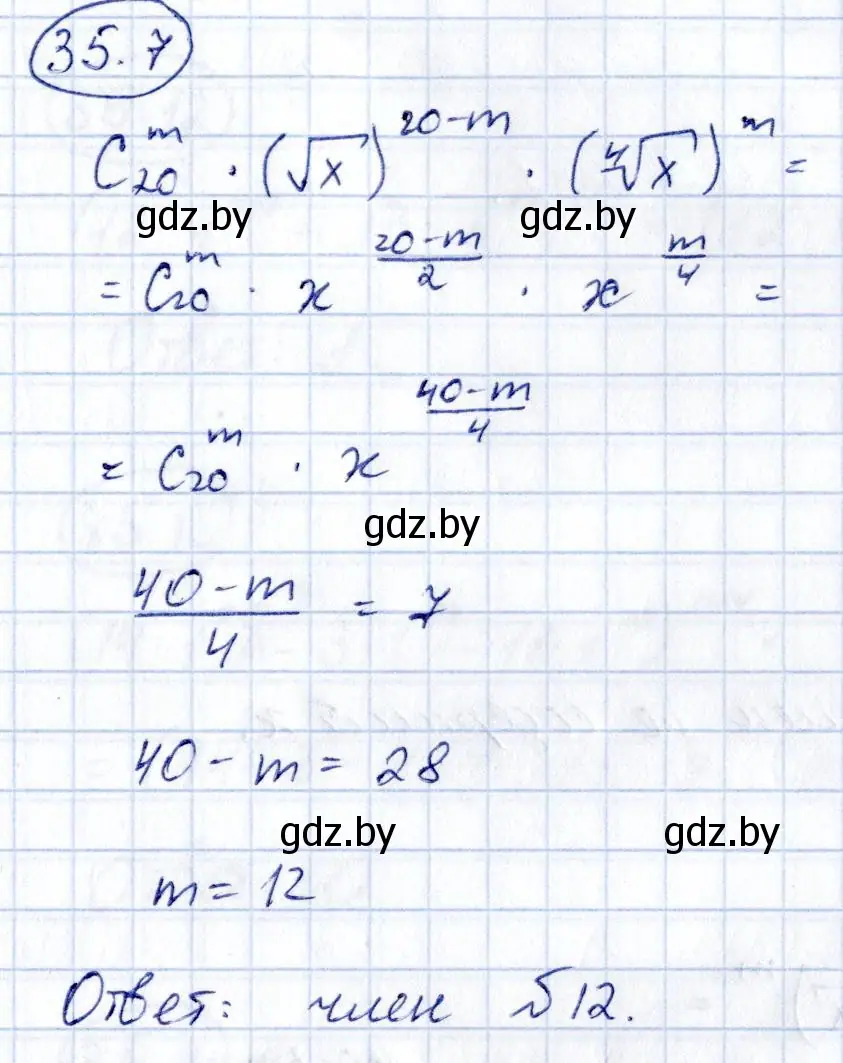 35.7
C₂₀ᵐ · (√x)²⁰⁻ᵐ · (⁴√x)ᵐ =
gdz.by gdz.by
= C₂₀ᵐ · x^((20-m)/2) · x^(m/4) =
= C₂₀ᵐ · x^((40-m)/4)
gdz.by
(40-m)/4 = 7
40 - m = 28
gdz.by gdz.by
m = 12
Ответ: член №12.